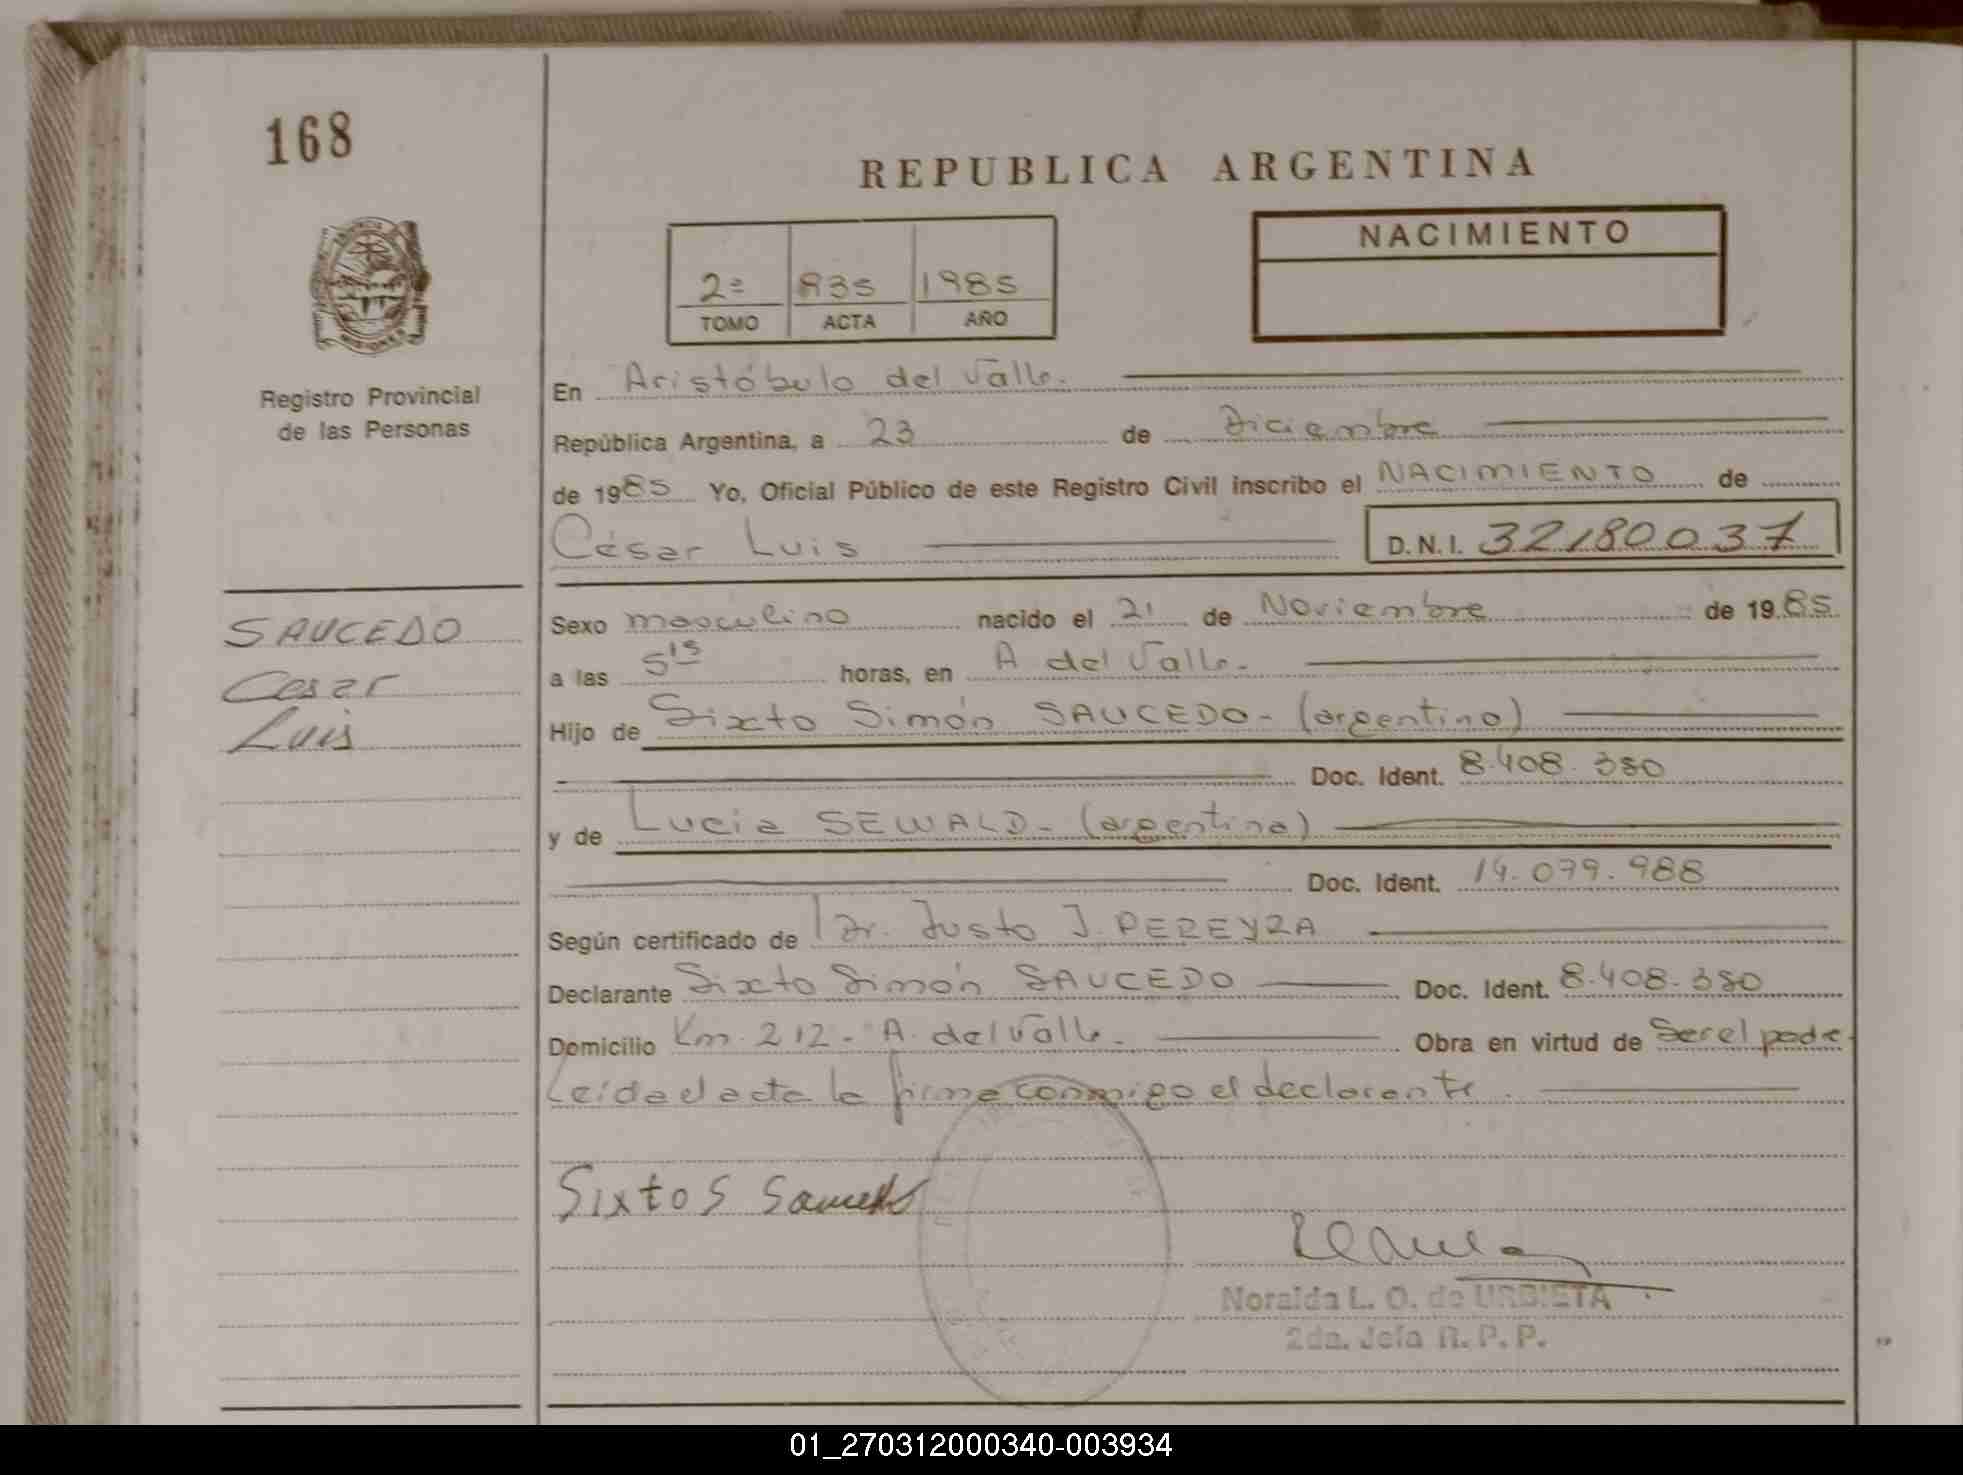 168
REPUBLICA ARGENTINA
NACIMIENTO
2º 935 1985
TOMO ACTA AÑO
Registro Provincial
de las Personas
En Aristóbulo del Valle.
República Argentina, a 23 de Diciembre
de 1985 Yo, Oficial Público de este Registro Civil inscribo el NACIMIENTO de
César Luis D.N.I. 32180037
SAUCEDO
Cesar
Luis
Sexo masculino nacido el 21 de Noviembre de 1985
a las 5 15 horas, en A. del Valle.
Hijo de Sixto Simón SAUCEDO - (argentino)
Doc. Ident. 8.408.380
y de Lucia SEWALD - (argentina)
Doc. Ident. 14.079.988
Según certificado de Dr. Justo J. PEREYRA
Declarante Sixto Simón SAUCEDO Doc. Ident. 8.408.380
Domicilio Km. 212 - A. del Valle. Obra en virtud de Ser el padre
Leída el acta la firma conmigo el declarante.
Sixto S Saucedo
Noraida L. O. de URBIETA
2da. Jefa R. P. P.
01_270312000340-003934